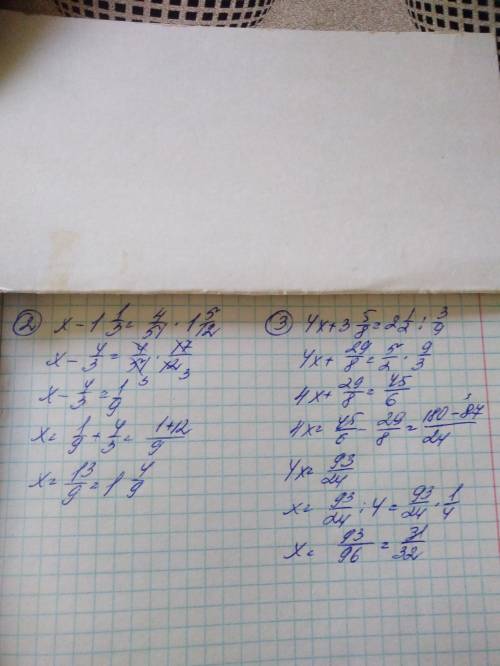 ② x - 1 1/3 = 4/51 · 1 5/12
x - 4/3 = 4/51 · 17/12 3 3
x - 4/3 = 1/9
x = 1/9 + 4/3 = 1+12/9
x = 13/9 = 1 4/9
③ 4x + 3 5/8 = 2 1/2 : 3/9
4x + 29/8 = 5/2 · 9/3
4x + 29/8 = 45/6
4x = 45/6 - 29/8 = 180-87/24
4x = 93/24
x = 93/24 : 4 = 93/24 · 1/4
x = 93/96 = 31/32